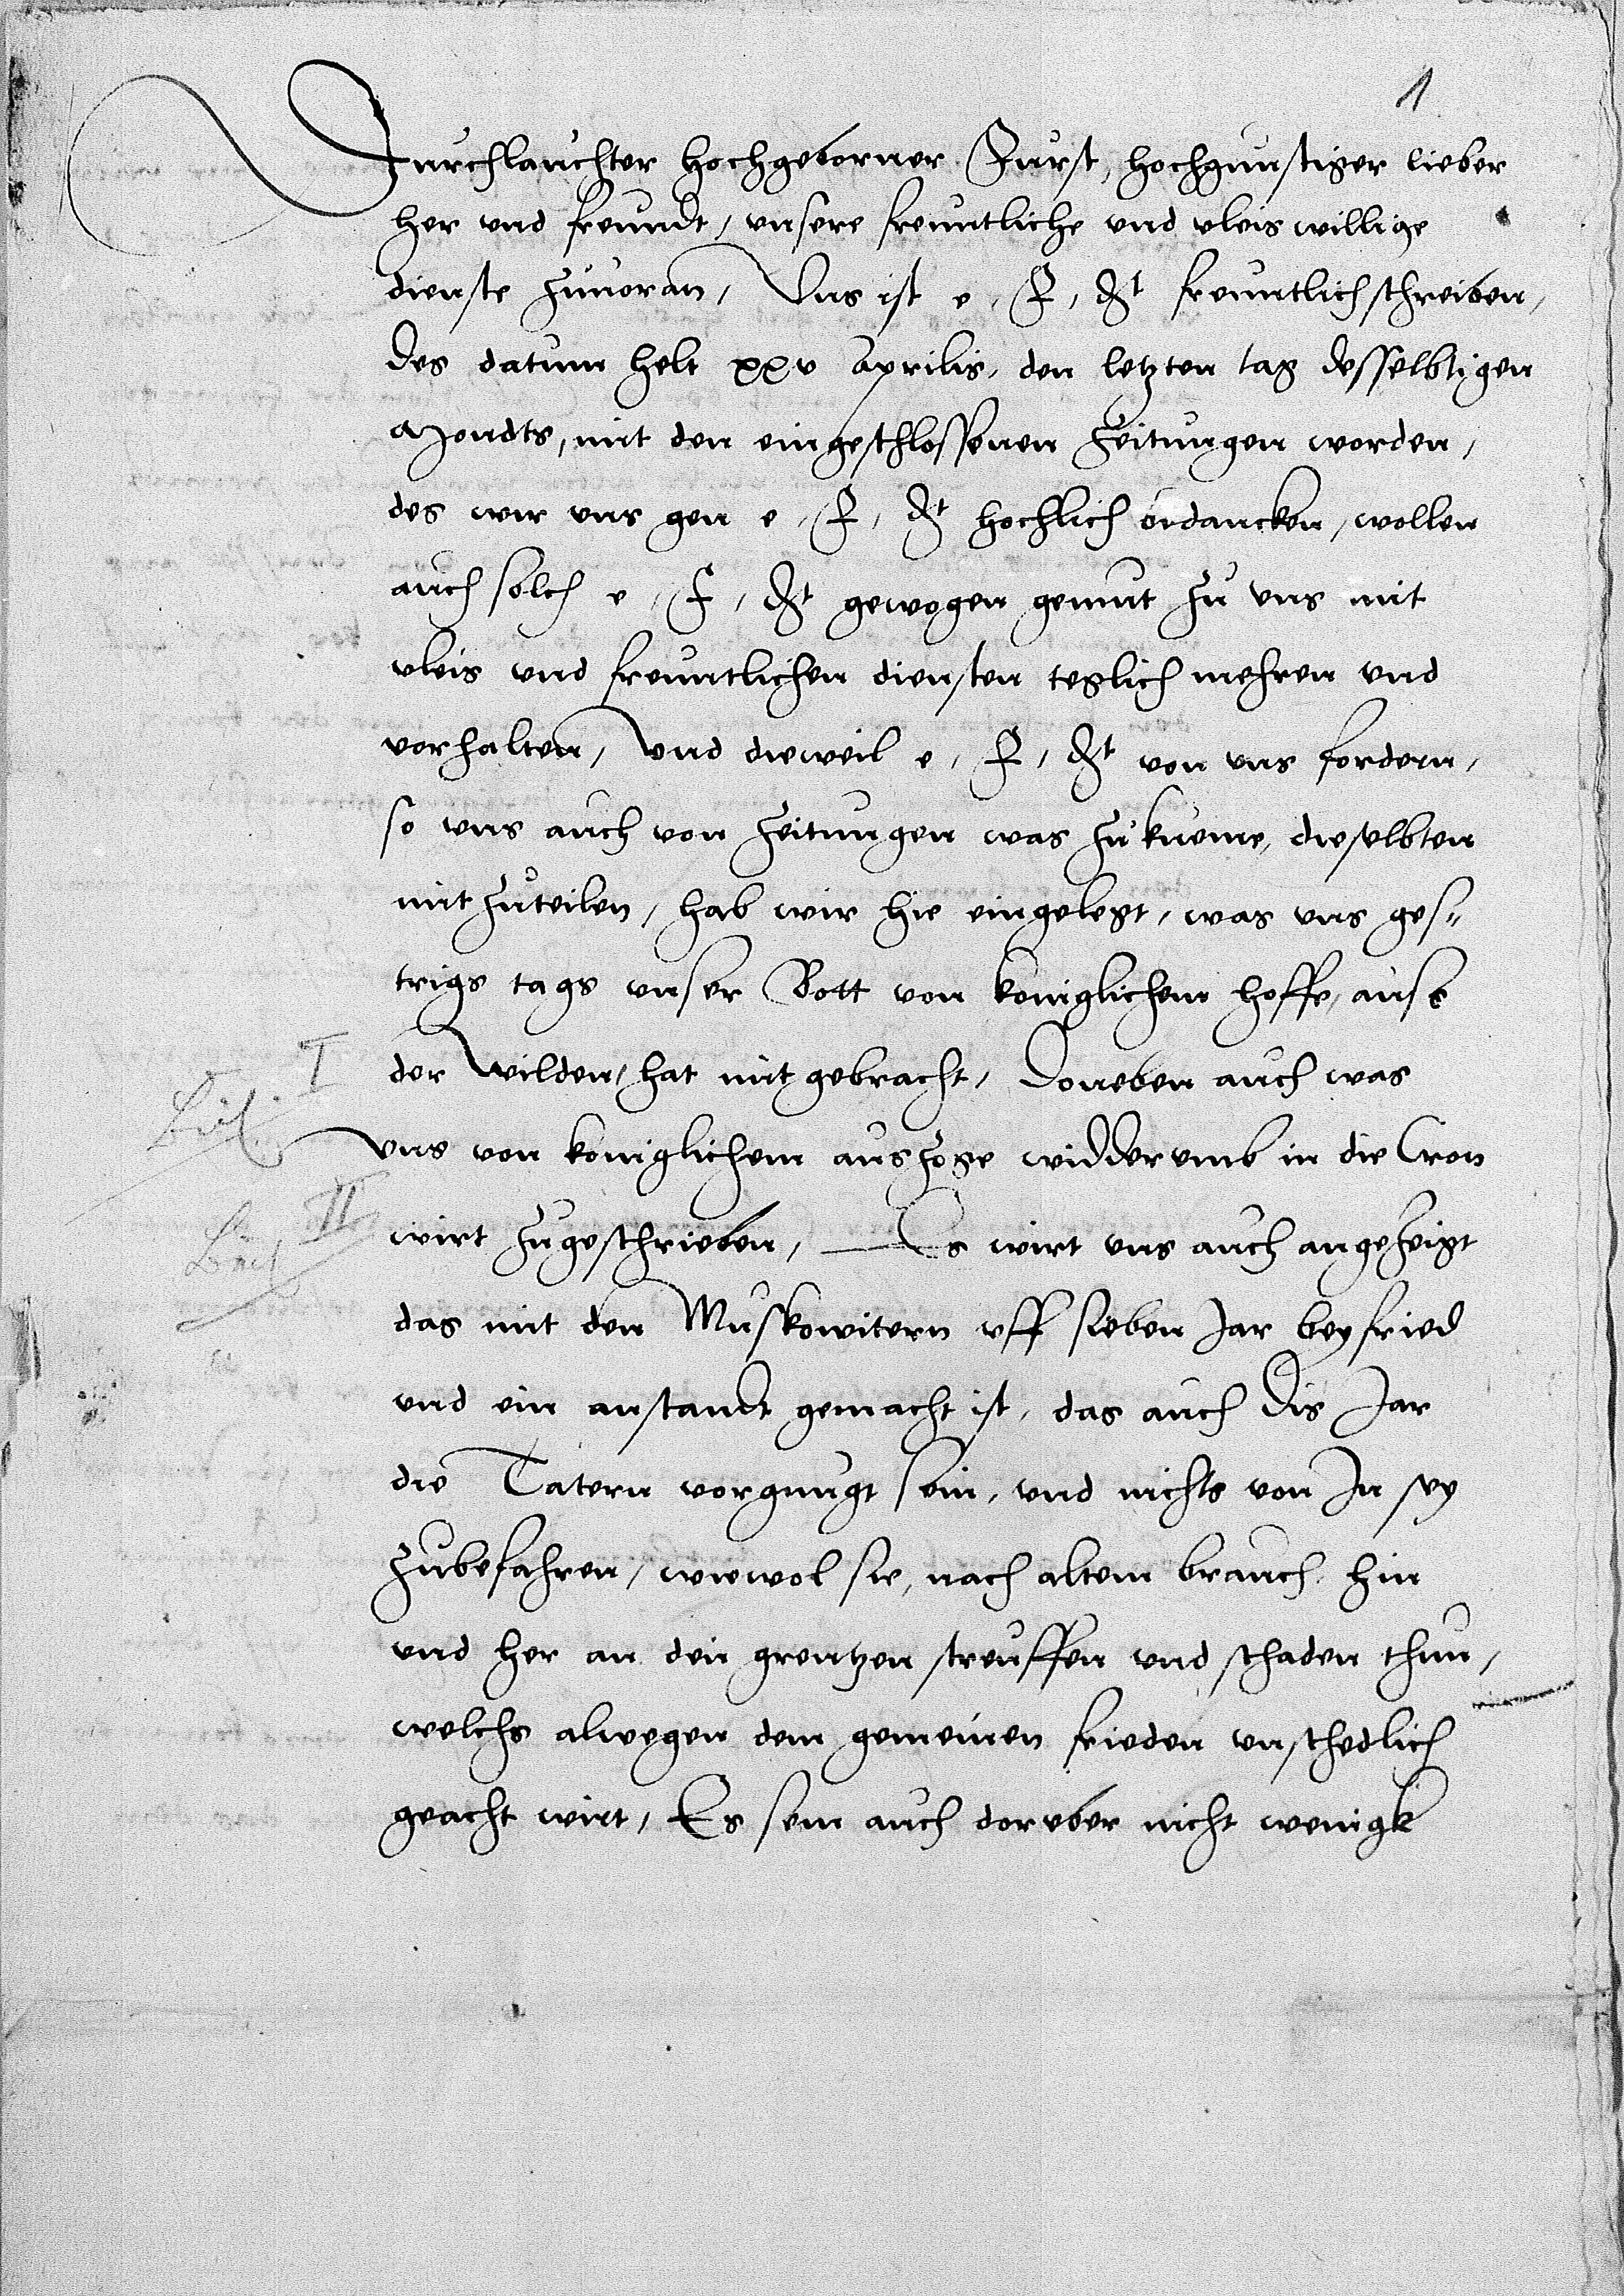 1
Durchlauchter hochgeborner Furst, hochgunstiger lieber
her vnd freundt, vnsere freuntliche vnd vleis willige
dienste zuuoran, Vns ist e, F, Dt freuntlich schreiben,
des datum helt xxv Aprilis, den letzten tag desselbtigen
Mondts, mit den eingeschlossenen Zeitungen worden,
des wir vns gen e, F, Dt hochlich bedancken, wollen
auch solch e, F, Dt gewogen gemut zu vns mit
vleis vnd freuntlichen diensten teglich mehren vnd
vorhalten, Vnd dieweil e, F, Dt von vns fordern,
so vns auch von Zeitungen was zukueme, dieselbten
mit zuteilen, hab wir hie eingelegt, was vns ges-
trigs tags vnser Bott von koniglichem hoffe, auss
der Wilden, hat mit gebracht, Doneben auch was
vns von koniglichem auszoge widderumb in die Cron
wirt zugeschrieben, Es wirt vns auch angezeigt
das mit den Muskowitern vff sieben Jar beyfried
vnd ein anstandt gemacht ist, das auch dis Jar
die Tatern vorgnugt sein, vnd nichts von In sey
zubefahren, wiewol sie, nach altem brauch hin
vnd her an den grentzen streuffen vnd schaden thun,
welchs alwegen dem gemeinen frieden vnschedlich
geacht wirt, Es sein auch doruber nicht wenigk
Beil. I
Beil II